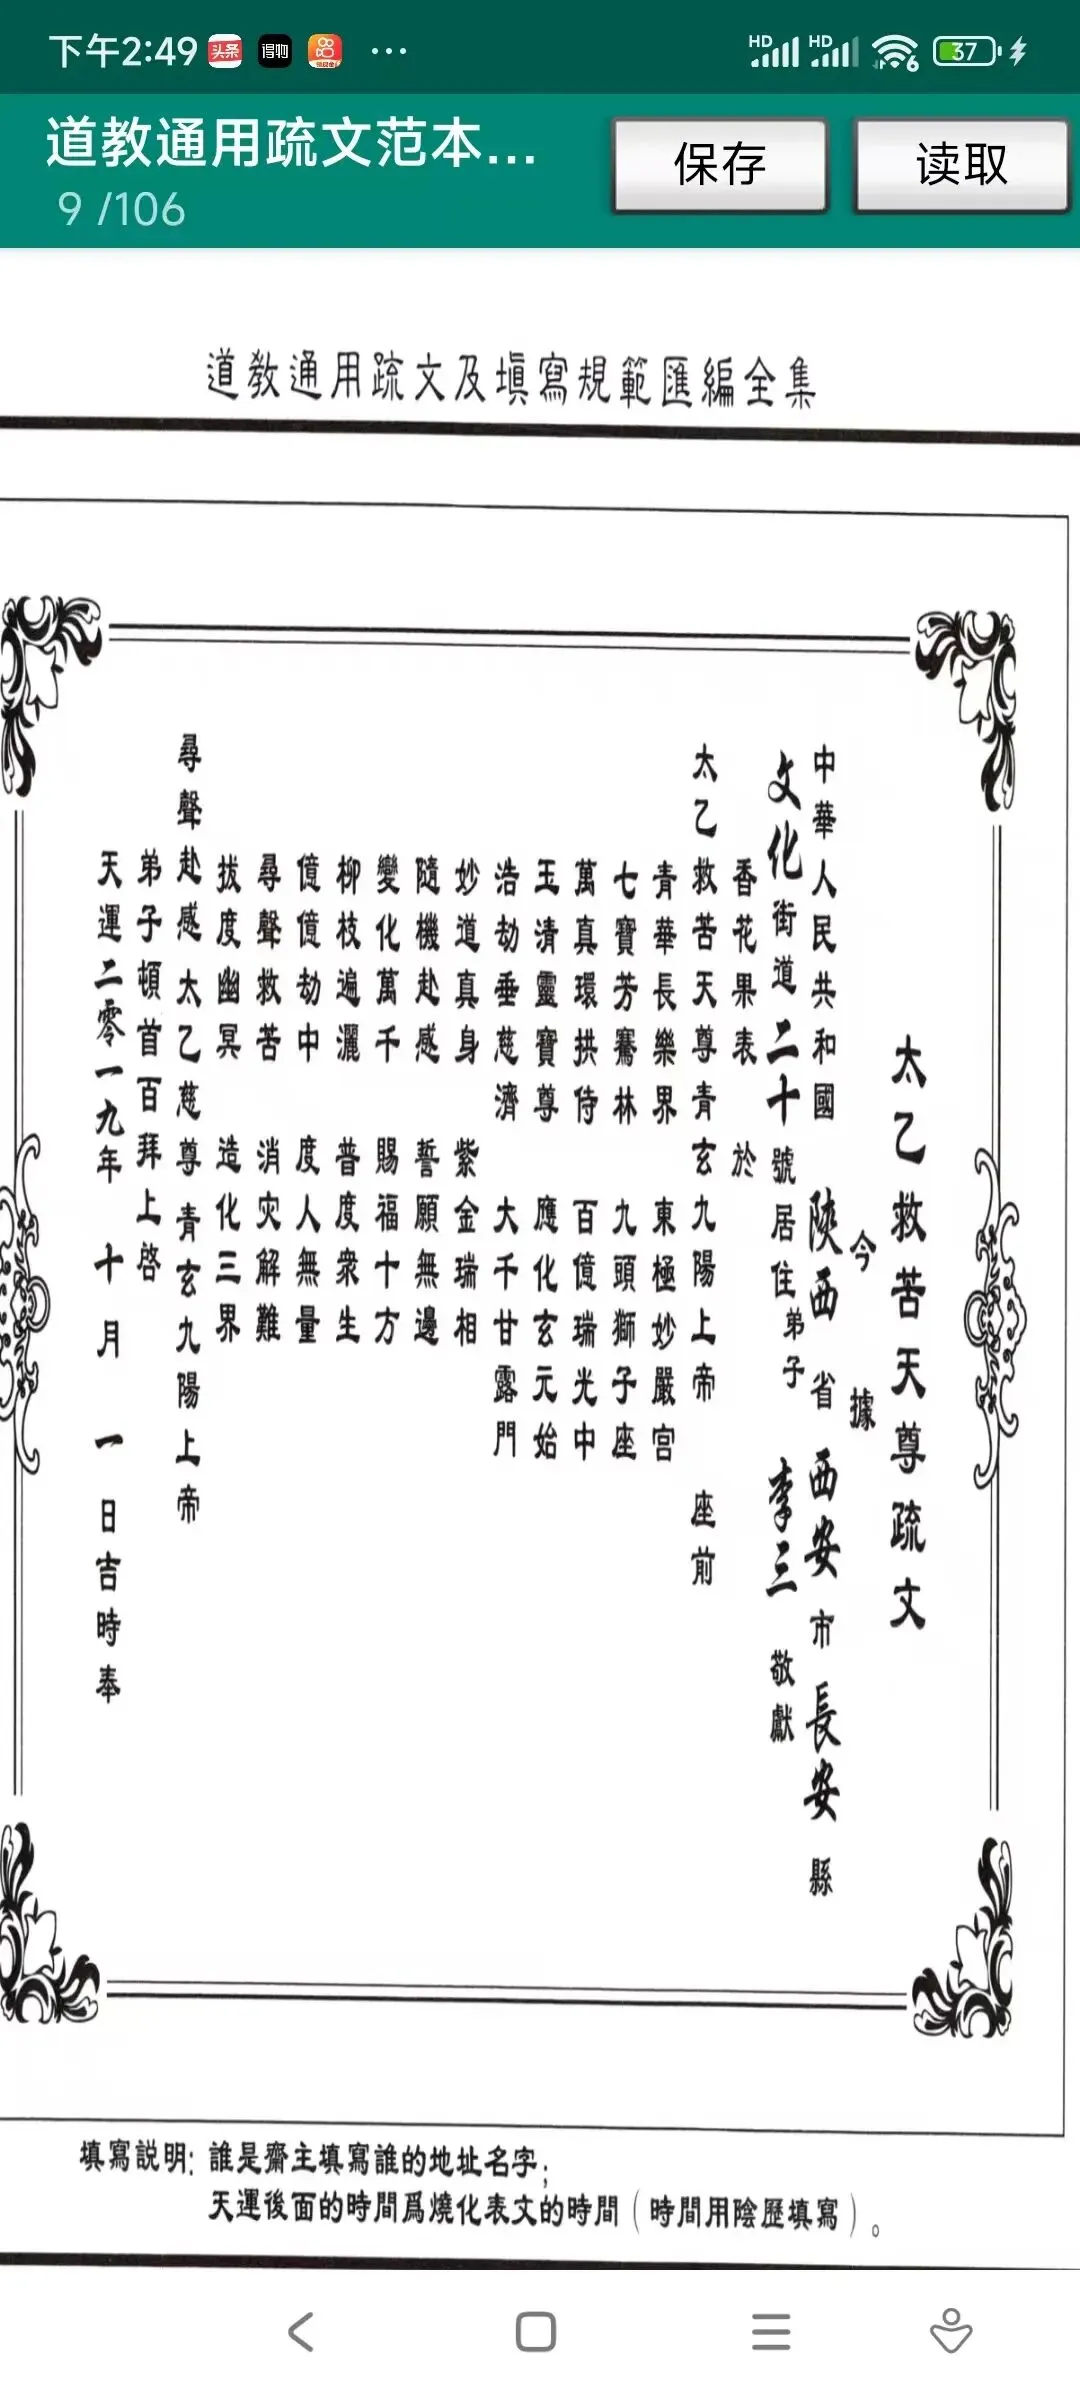 下午2:49 头条 得物 ... HD HD 6 37
道教通用疏文范本...
9 /106
保存 读取
道教通用疏文及填寫規範匯編全集
太乙救苦天尊疏文
今 據
中華人民共和國 陝西 省 西安 市 長安 縣
文化街道二十號居住弟子 李三 敬獻
香花果表 於
太乙救苦天尊青玄九陽上帝 座前
青華長樂界 東極妙嚴宫
七寶芳騫林 九頭獅子座
萬真環拱侍 百億瑞光中
玉清靈寶尊 應化玄元始
浩劫垂慈濟 大千甘露門
妙道真身 紫金瑞相
隨機赴感 誓願無邊
變化萬千 賜福十方
柳枝遍灑 普度衆生
億億劫中 度人無量
尋聲救苦 消灾解難
拔度幽冥 造化三界
尋聲赴感太乙慈尊青玄九陽上帝
弟子頓首百拜上啓
天運二零一九年 十月 一日吉時奉
填寫説明: 誰是齋主填寫誰的地址名字;
天運後面的時間爲燒化表文的時間(時間用陰歷填寫)。